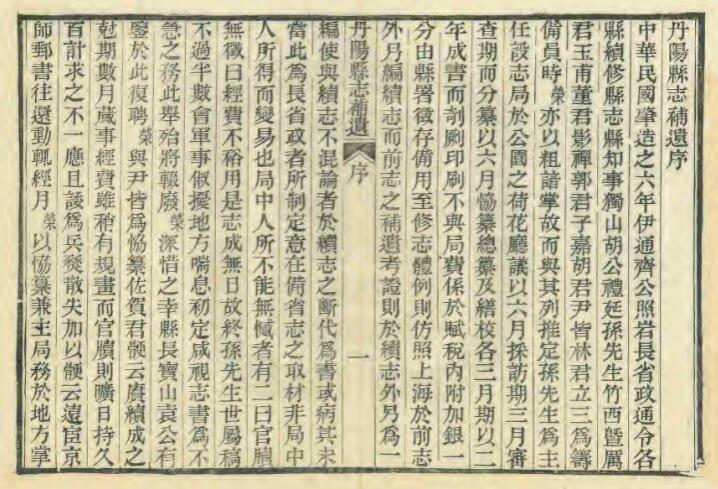 丹陽縣志補遺序
中華民國肇造之六年伊通齊公照岩長省政通令各
縣續修縣志縣知事獨山胡公禮延孫先生竹西暨厲
君玉甫董君影禪郭君子嘉胡君尹皆林君立三爲籌
備員時榮亦以粗諳掌故而與其列推定孫先生爲主
任設志局於公園之荷花廳議以六月採訪期三月審
查期而分纂以六月協纂總纂及繕校各三月期以二
年成書而剞劂印刷不與局費係於賦稅內附加銀一
分由縣署徵存備用至修志體例則仿照上海於前志
外另編續志而前志之補遺考證則於續志外另爲一
丹陽縣志補遺 序 一
編使與續志不混論者於續志之斷代爲書或病其未
當此爲長省政者所制定意在備省志之取材非局中
人所得而變易也局中人所不能無憾者有二曰官牘
無徵曰經費不裕用是志成無日故終孫先生世屬稿
不過半數會軍事俶擾地方喘息初定咸視志書爲不
急之務此舉殆將輟廢榮深惜之幸縣長寶山袁公有
鑒於此復聘榮與尹皆爲協纂佐賀君骾云賡續成之
尅期數月蕆事經費雖稍有規畫而官牘則曠日持久
百計求之不一應且諉爲兵燹散失加以骾云遠宦京
師郵書往還動輒經月榮以協纂兼主局務於地方掌